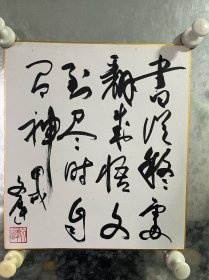 書從疑處
翻成悟文
到時自
有神
甲戌